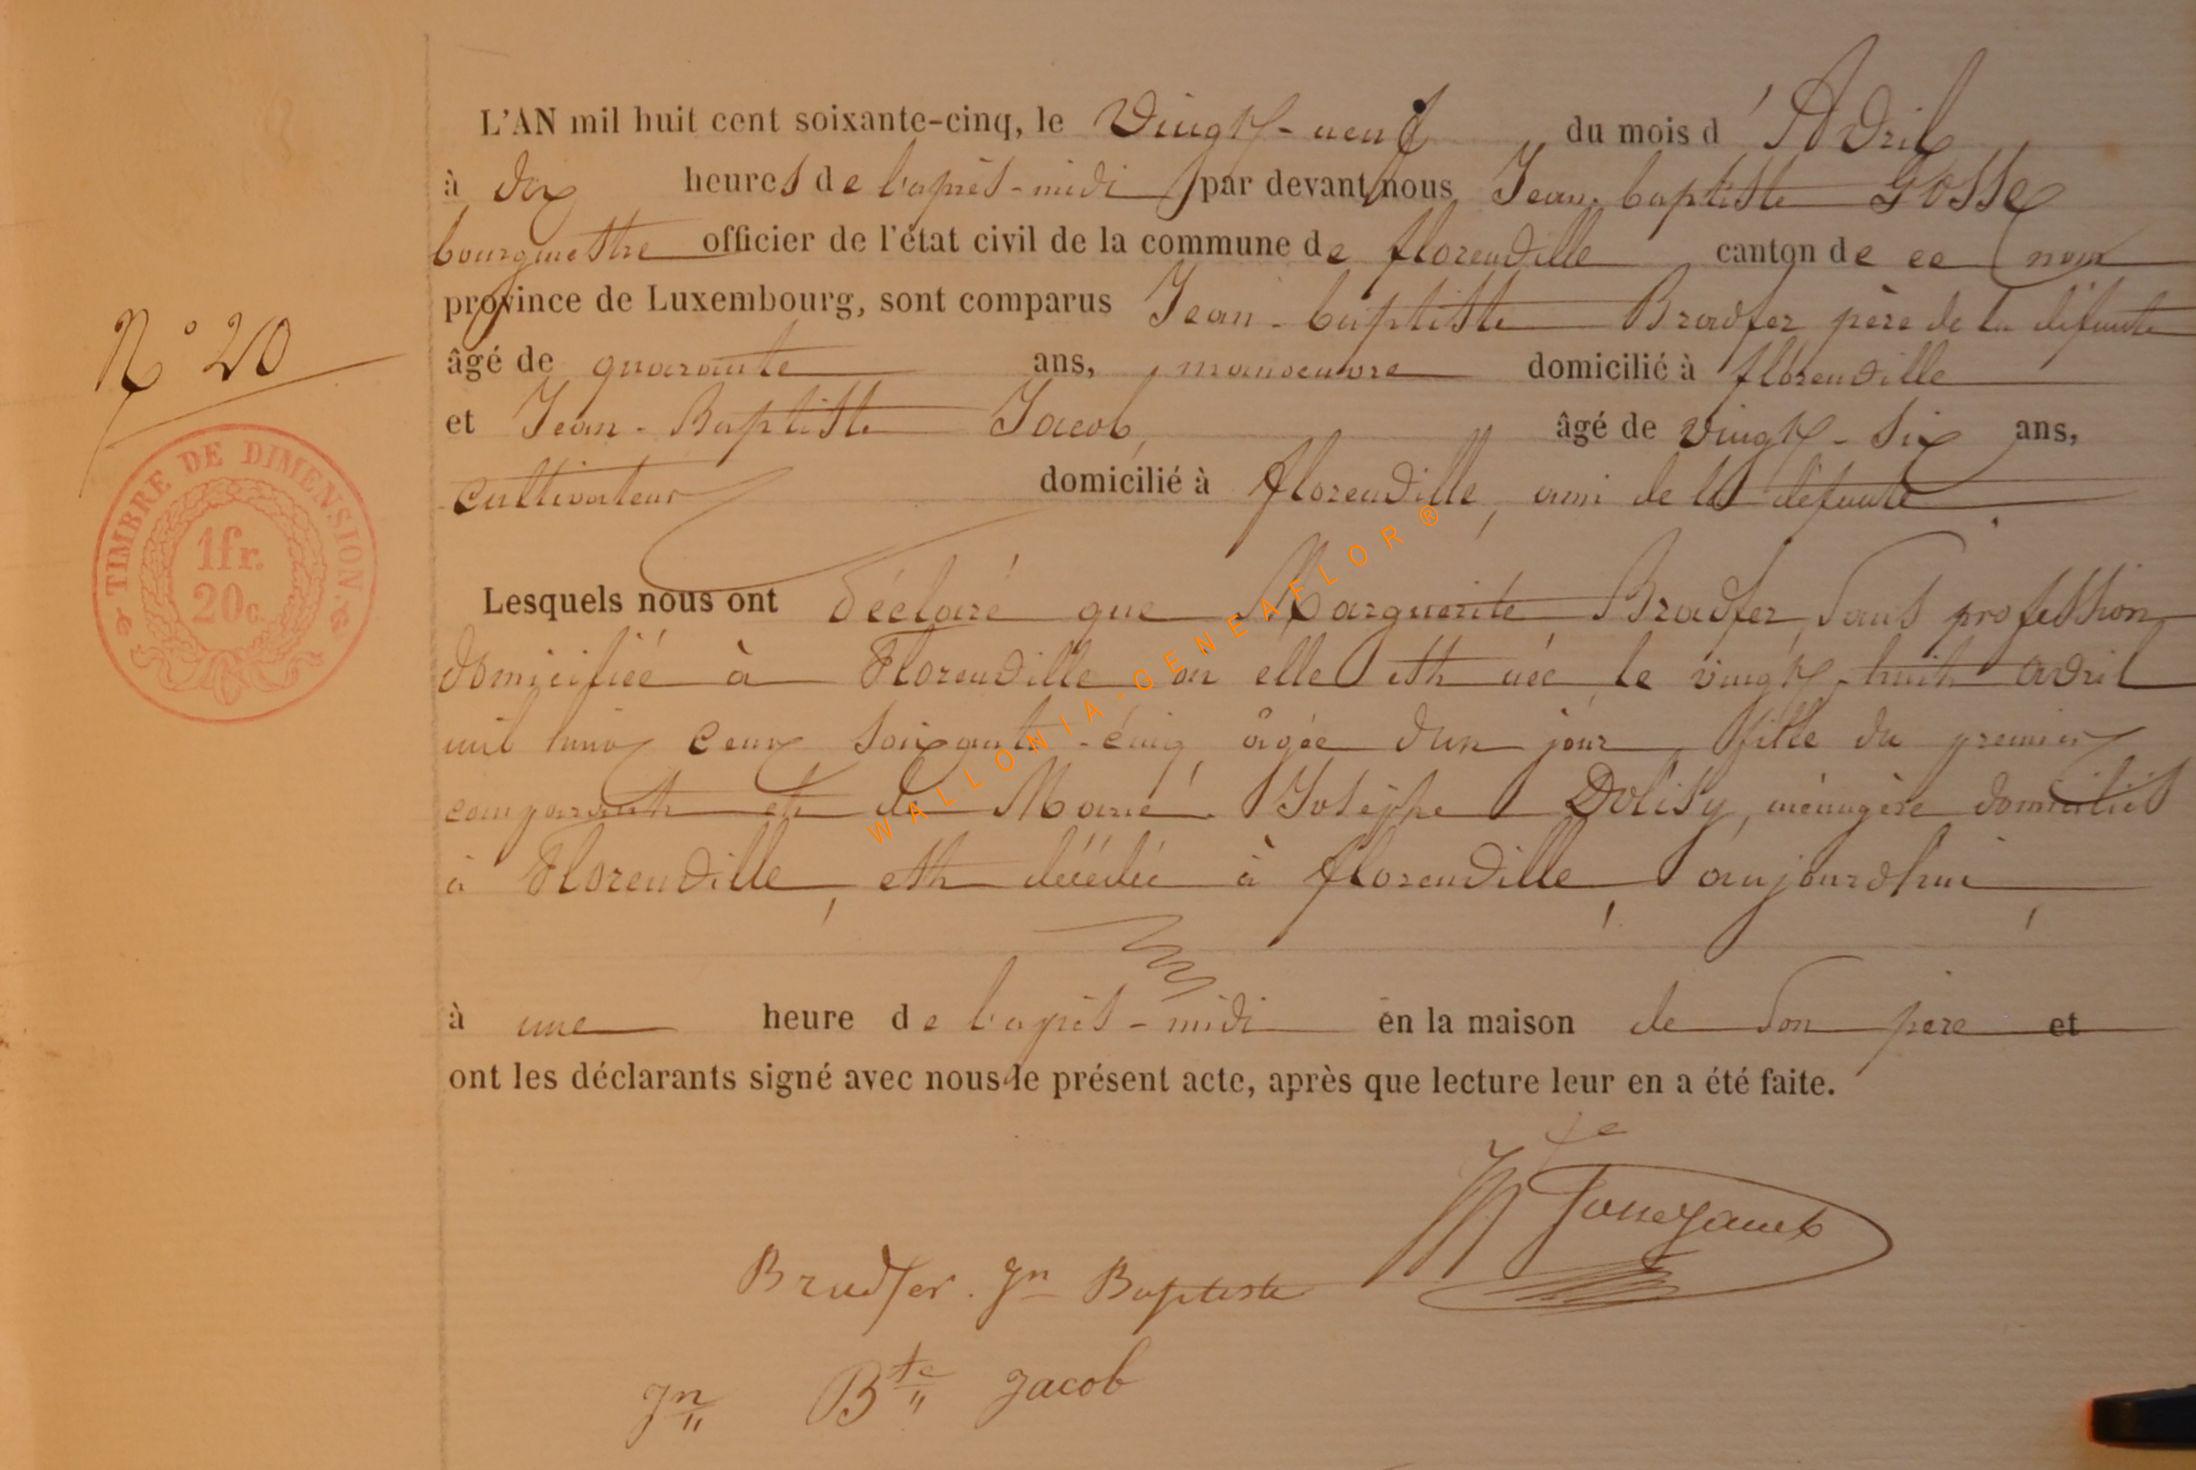 L'AN mil huit cent soixante-cinq, le Vingt-neuf du mois d'Avril
à Six heures de l'après-midi par devant nous Jean-baptiste Gosse
bourgmestre officier de l'état civil de la commune de florenville canton de ce nom
province de Luxembourg, sont comparus Jean-baptiste Bradfer père de la défunte
âgé de quarante ans, manoeuvre domicilié à florenville
et Jean-Baptiste Jacob, âgé de vingt-six ans,
cultivateur domicilié à florenville, ami de la défunte
N° 20
TIMBRE DE DIMENSION.
1fr.
20c.
Lesquels nous ont déclaré que Marguerite Bradfer, sans profession
domiciliée à Florenville où elle est née le vingt-huit avril
mil huit cent soixante-cinq, âgée d'un jour, fille du premier
comparant et de Marie-Josèphe Dolisy, ménagère domiciliés
à Florenville, est décédée à florenville, aujourd'hui,
à une heure de l'après-midi en la maison de son père et
ont les déclarants signé avec nous le présent acte, après que lecture leur en a été faite.
Bradfer. Jn Baptiste
Jn Bte Jacob
WALLONIA-GENEAFLOR®